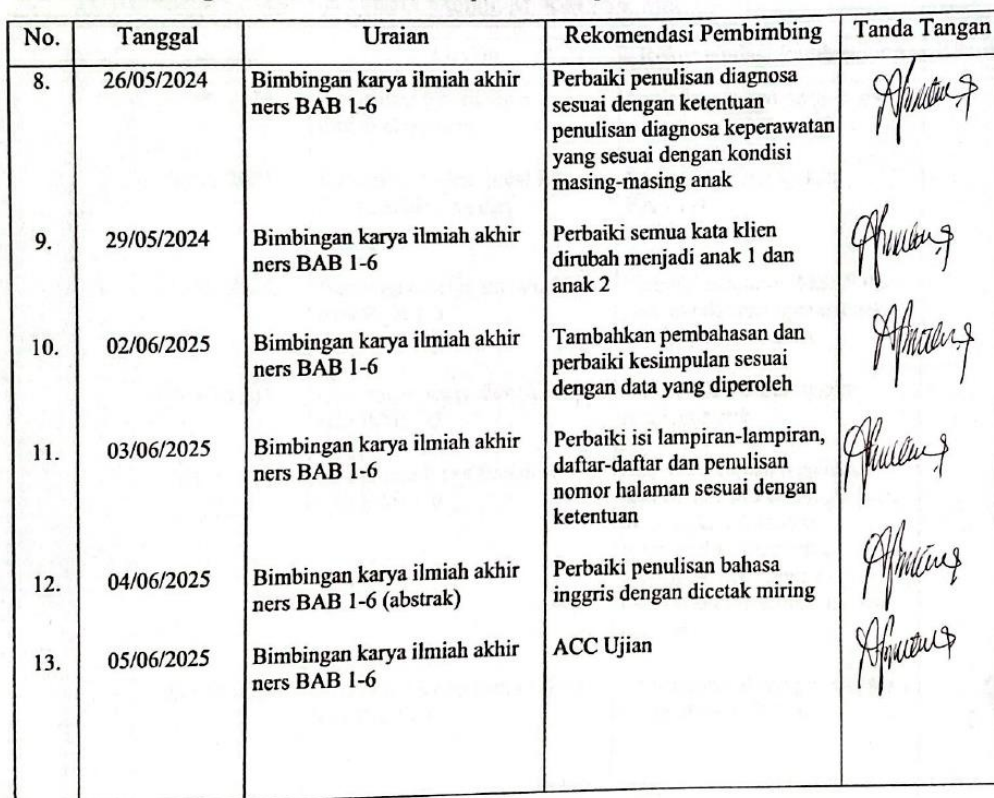 No. Tanggal Uraian Rekomendasi Pembimbing Tanda Tangan
8. 26/05/2024 Bimbingan karya ilmiah akhir Perbaiki penulisan diagnosa
ners BAB 1-6 sesuai dengan ketentuan
penulisan diagnosa keperawatan
yang sesuai dengan kondisi
masing-masing anak
9. 29/05/2024 Bimbingan karya ilmiah akhir Perbaiki semua kata klien
ners BAB 1-6 dirubah menjadi anak 1 dan
anak 2
10. 02/06/2025 Bimbingan karya ilmiah akhir Tambahkan pembahasan dan
ners BAB 1-6 perbaiki kesimpulan sesuai
dengan data yang diperoleh
11. 03/06/2025 Bimbingan karya ilmiah akhir Perbaiki isi lampiran-lampiran,
ners BAB 1-6 daftar-daftar dan penulisan
nomor halaman sesuai dengan
ketentuan
12. 04/06/2025 Bimbingan karya ilmiah akhir Perbaiki penulisan bahasa
ners BAB 1-6 (abstrak) inggris dengan dicetak miring
13. 05/06/2025 Bimbingan karya ilmiah akhir ACC Ujian
ners BAB 1-6